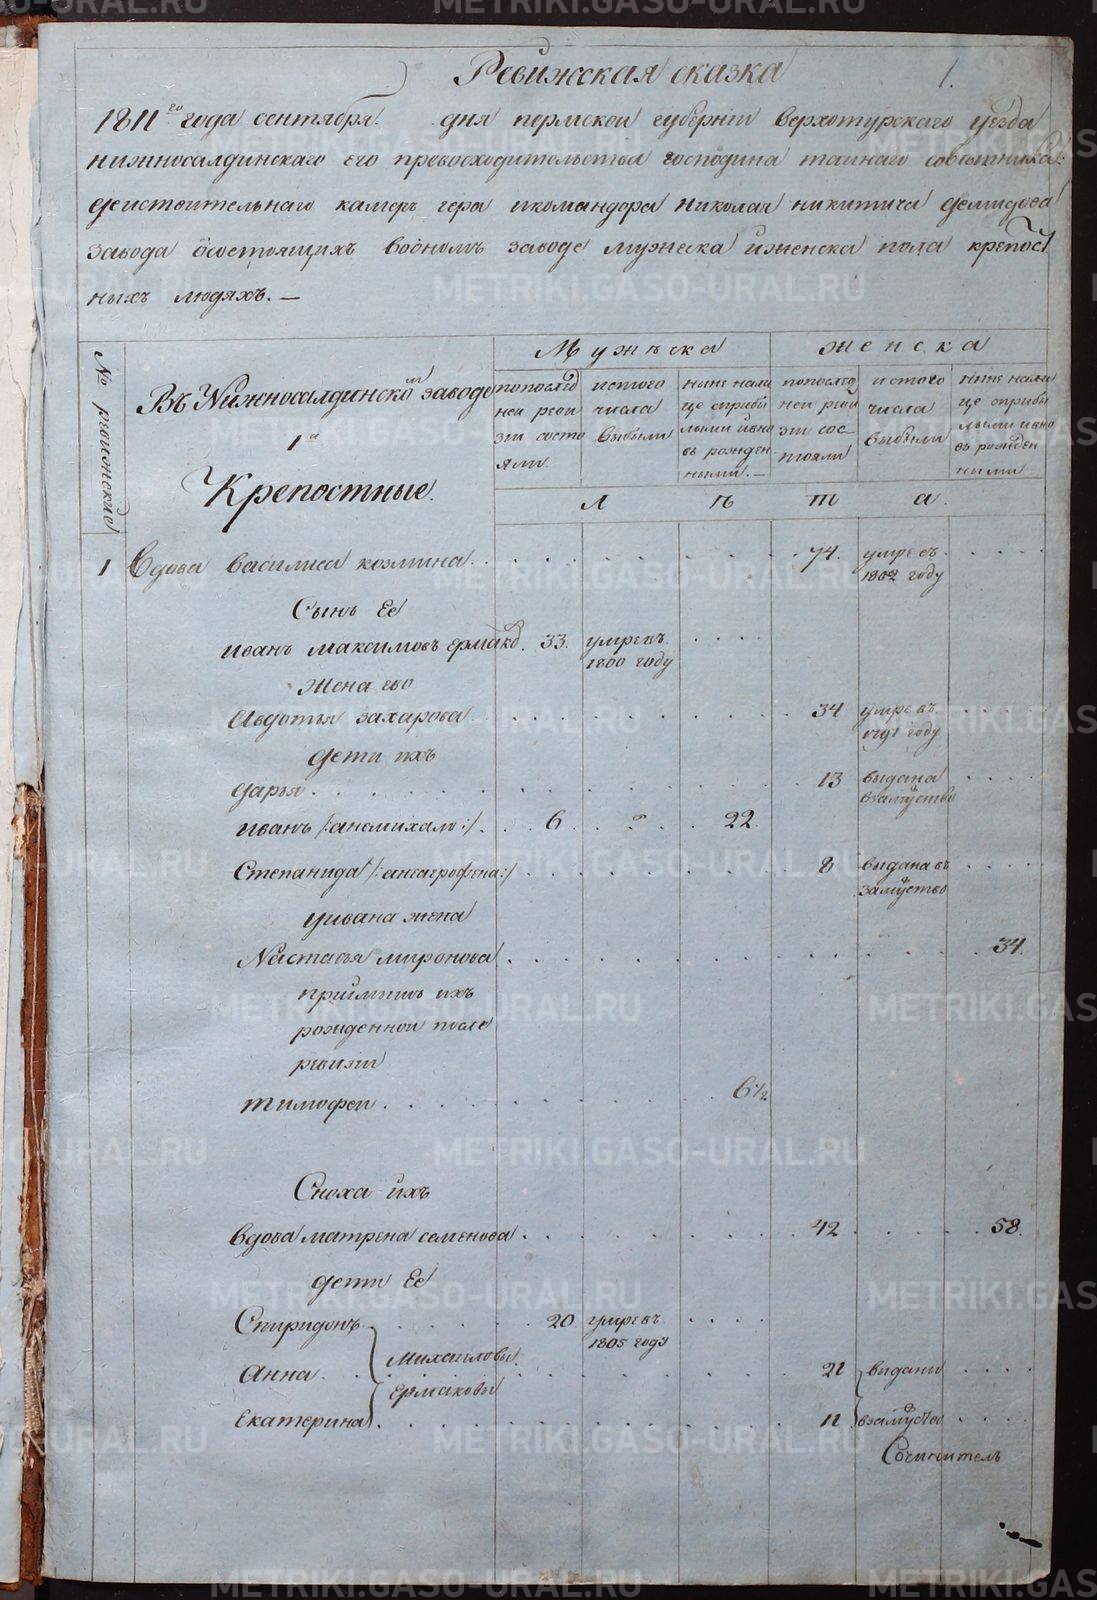 Ревижская сказка
1.
1811го года сентября. дня пермской губернии верхотурскаго уезда
нижносалдинскаго его превосходительства господина тайнаго советника
действительнаго камеръ гера икомандора николая никитича демидова
завода осостоящихъ воономъ заводе мужеска иженска пола крепост
ныхъ людяхъ. —
Мужеска
женска
№ ревижские
Въ Нижносалдинском заводе
1е
Крепостные.
попослед
ней реви
зи состо
яли
истого
числа
выбыли
ныне нали
це сприбы
лыми ивно
въ рожден
ными. —
попослед
ней реви
зи сос-
тояли
истого
числа
выбыли
ныне нали
це сприбы
лыми ивно
въ рожден
ными
Л ѣ т а.
1 Вдова василиса козмина 74. умре въ
1802 году
Сынъ Ее
иванъ максимовъ ермаков. 33. умре въ
1800 году
Жена его
Авдотья захарова 34 умре въ
году
дети ихъ
дарья 13 выдана
взамуство
иванъ /:анемихало:/ 6 22.
Степанида /:анеагрофена:/ 8 выдана въ
замуство
уивана жена
Настасья миронова 34.
приимышъ ихъ
рожденной после
ревизии
тимофеи 6 1/2
Сноха ихъ
вдова матрена семенова 42 58.
дети Ее
Спиридонъ 20 умре въ
1805 году
Михаиловы
Анна 21 выданы
Ермаковы
Екатерина 11 взамуство
Сочинитель
METRIKI.GASO-URAL.RU